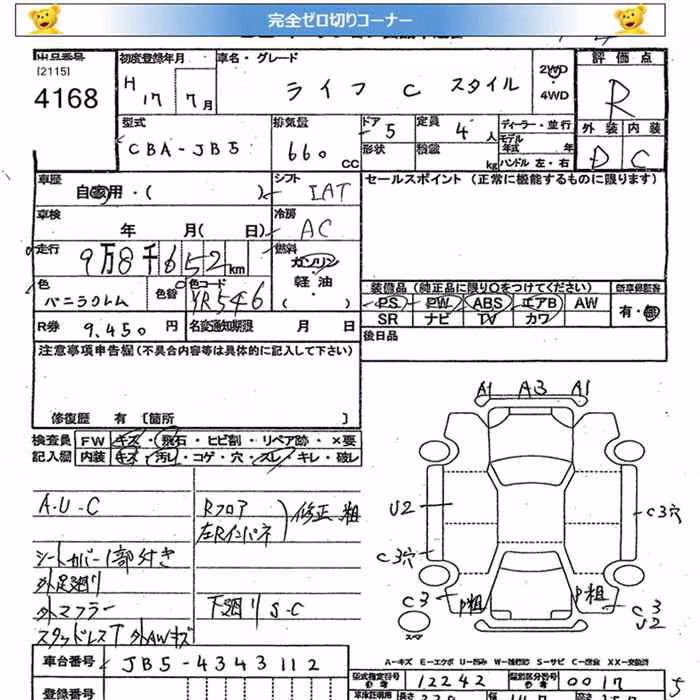 完全ゼロ切りコーナー
出品番号 初度登録年月 車名・グレード 評価点
[2115] H 17 7月 ライフ C スタイル 2WD・4WD R
4168
型式 排気量 ドア 5 定員 4人 ディーラー・並行 外装 内装
CBA-JB5 660 CC 形状 積載 kg モデル年式 年 D C
ハンドル 左・右
車歴 自家用・( ) シフト IAT セールスポイント (正常に機能するものに限ります)
車検 年 月( 日) 冷房 AC
走行 9万8千652km 燃料 ガソリン・軽油・( )
色 バニラクレム 色替 色コード YR546 装備品 (純正品に限り○をつけてください) 新車保証書
PS PW ABS エアB AW 有・無
R券 9.450円 名変通知期限 月 日 SR ナビ TV カワ
後日品
注意事項申告欄(不具合内容等は具体的に記入して下さい)
修復歴 有 〔箇所 〕
検査員 FW キズ・飛石・ヒビ割・リペア跡・×要
記入欄 内装 キズ・汚レ・コゲ・穴・スレ・キレ・破レ
A1 A3 A1
A.U-C Rフロア
左Rインパネ 修正 粗
シートカバー1部付き
外足廻り
外マフラー 下廻りS-C
スタッドレスT 外AWキズ
U2 C3穴
C3穴
C3 P粗 P粗 C3
U2
スペア
A-キズ E-エクボ U-凹み W-補修跡 S-サビ C-腐食 XX-交換済
車台番号 JB5-4343112 型式指定番号 12242 類別区分番号 0017
登録番号